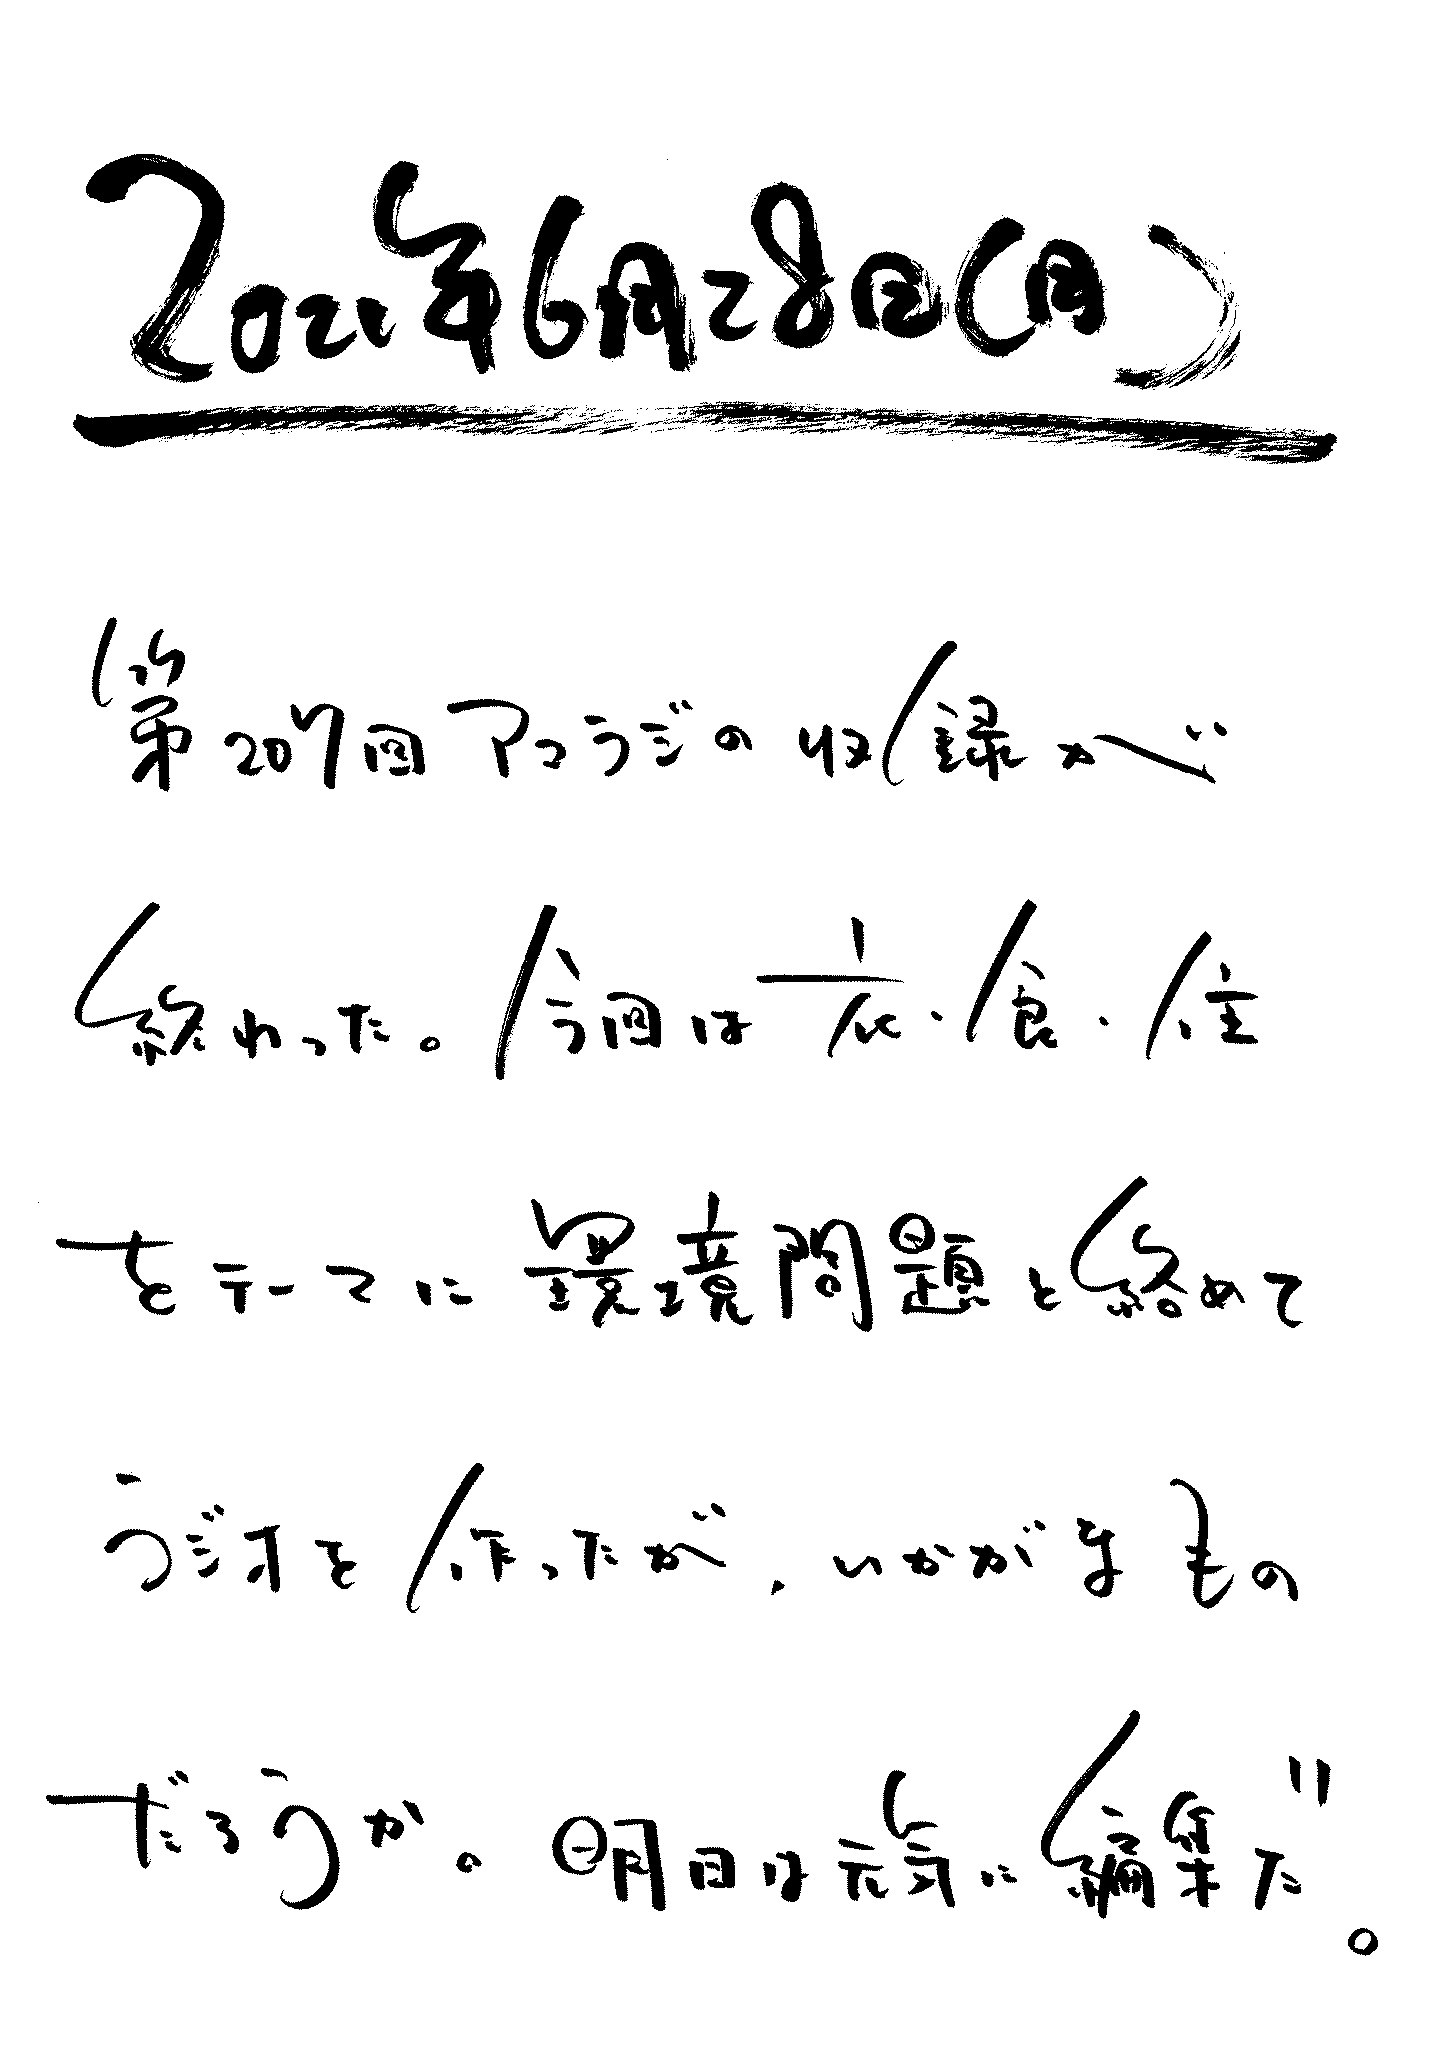 2021年6月28日(月)
第207回アコラジの収録が
終わった。今回は衣・食・住
をテーマに環境問題と絡めて
ラジオを作ったが、いかがなもの
だろうか。明日は元気に編集だ。